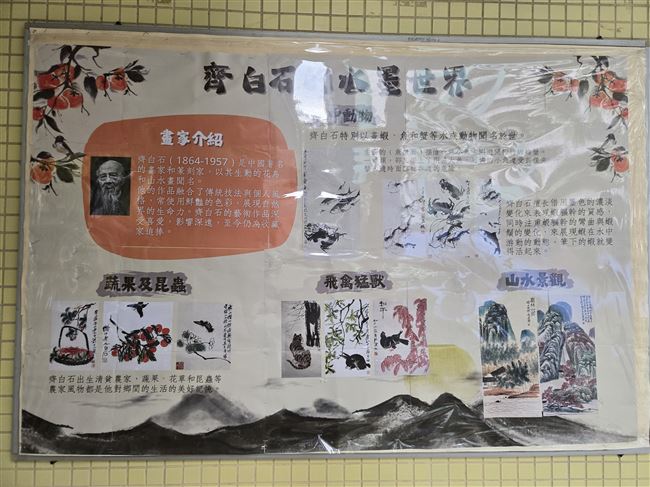 齊白石 水墨世界
中動物
畫家介紹
齊白石(1864-1957)是中國著名
的畫家和篆刻家，以其生動的花鳥
和山水畫聞名。
他的作品融合了傳統技法與個人風
格，常使用鮮豔的色彩，展現對自然
界的生命力。齊白石的藝術作品深
受喜愛，影響深遠，至今仍為收藏
家追捧。
齊白石特別以畫蝦、魚和蟹等水族動物聞名於世。
齊白石擅長借用墨色的濃淡
變化來表現蝦軀幹的質感，
同時注重蝦軀幹的彎曲與蝦
鬚的變化，來展現蝦在水中
游動的動態，筆下的蝦就變
得活起來。
蔬果及昆蟲
飛禽猛獸
山水景觀
齊白石出生清貧農家，蔬菜、花草和昆蟲等
農家風物都是他對鄉間的生活的美好記憶。